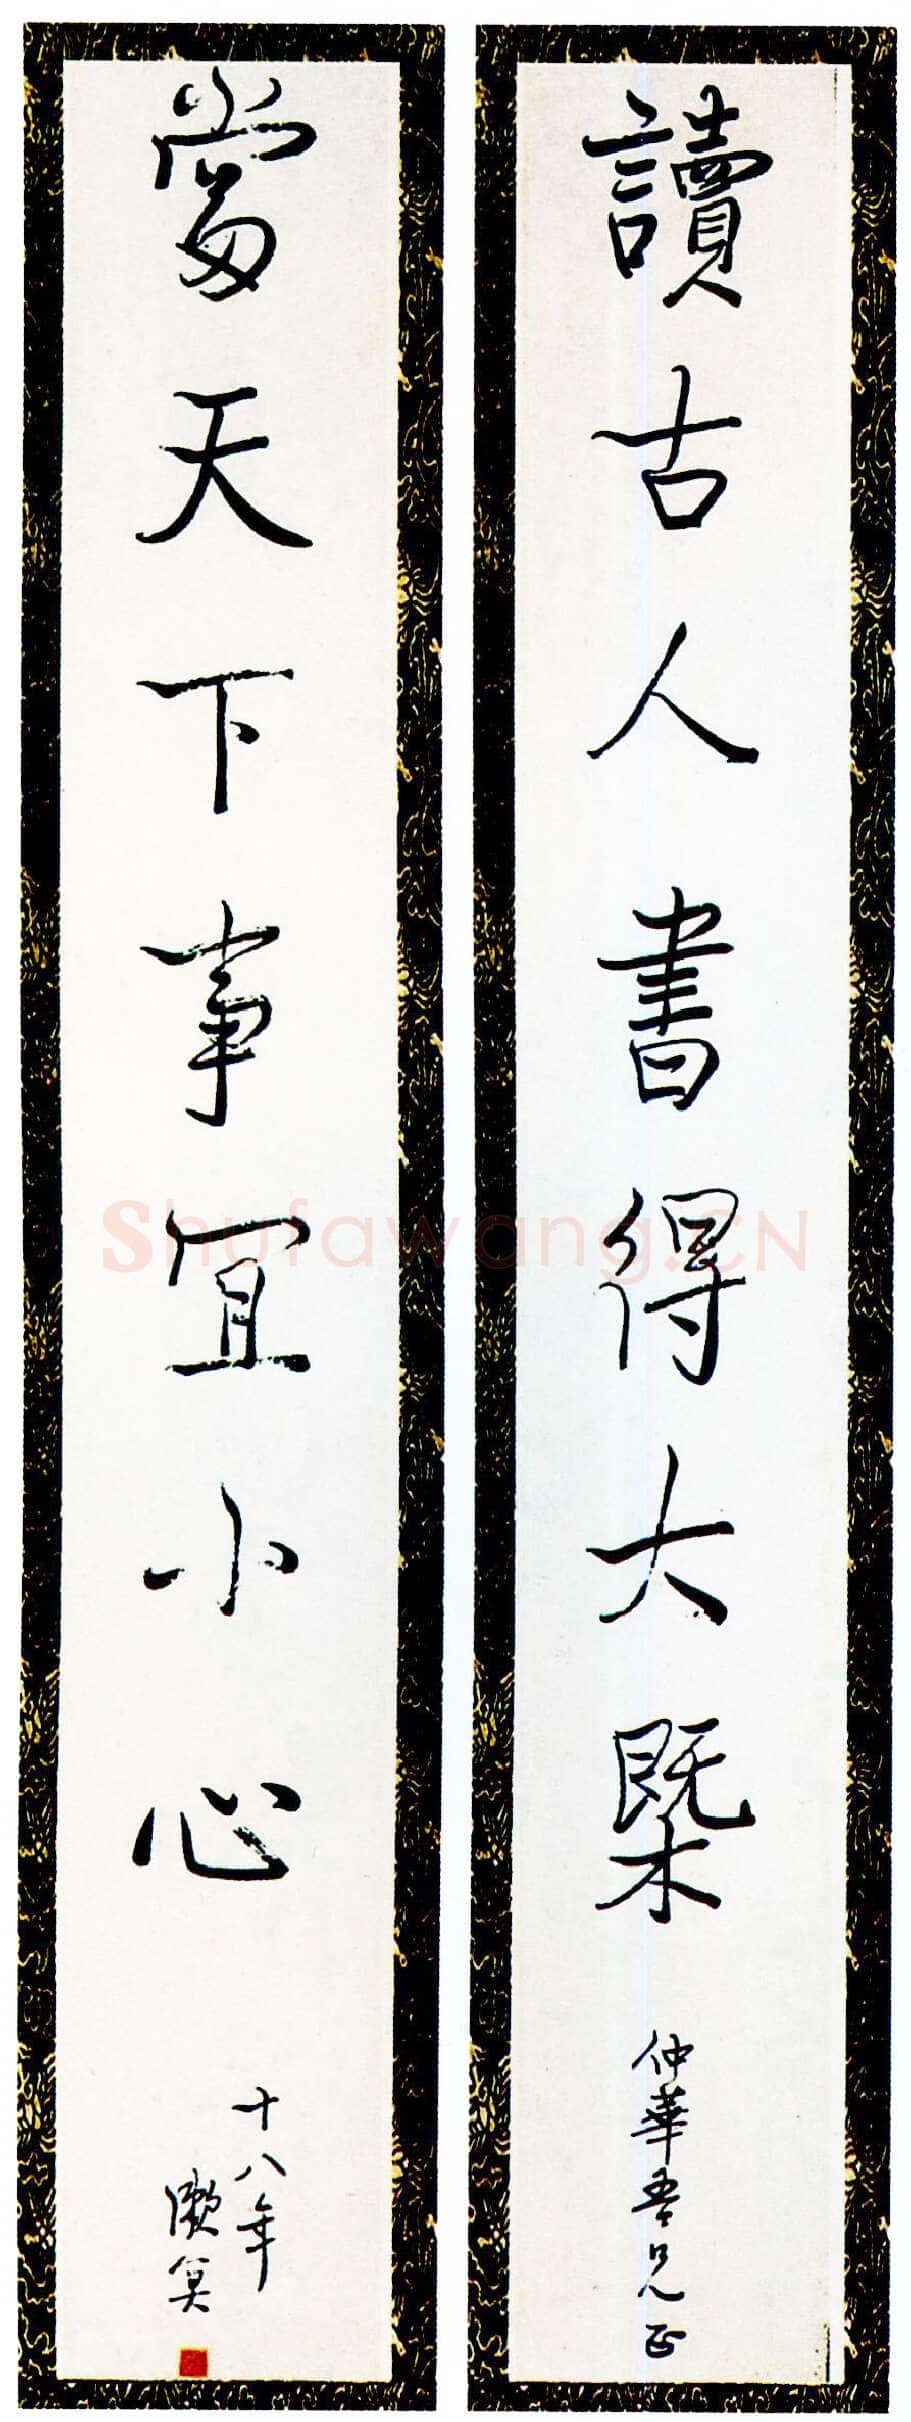 讀古人書得大槩
仲華吾兄正
當天下事冝小心
十八年
漱冥
Shufawang.CN